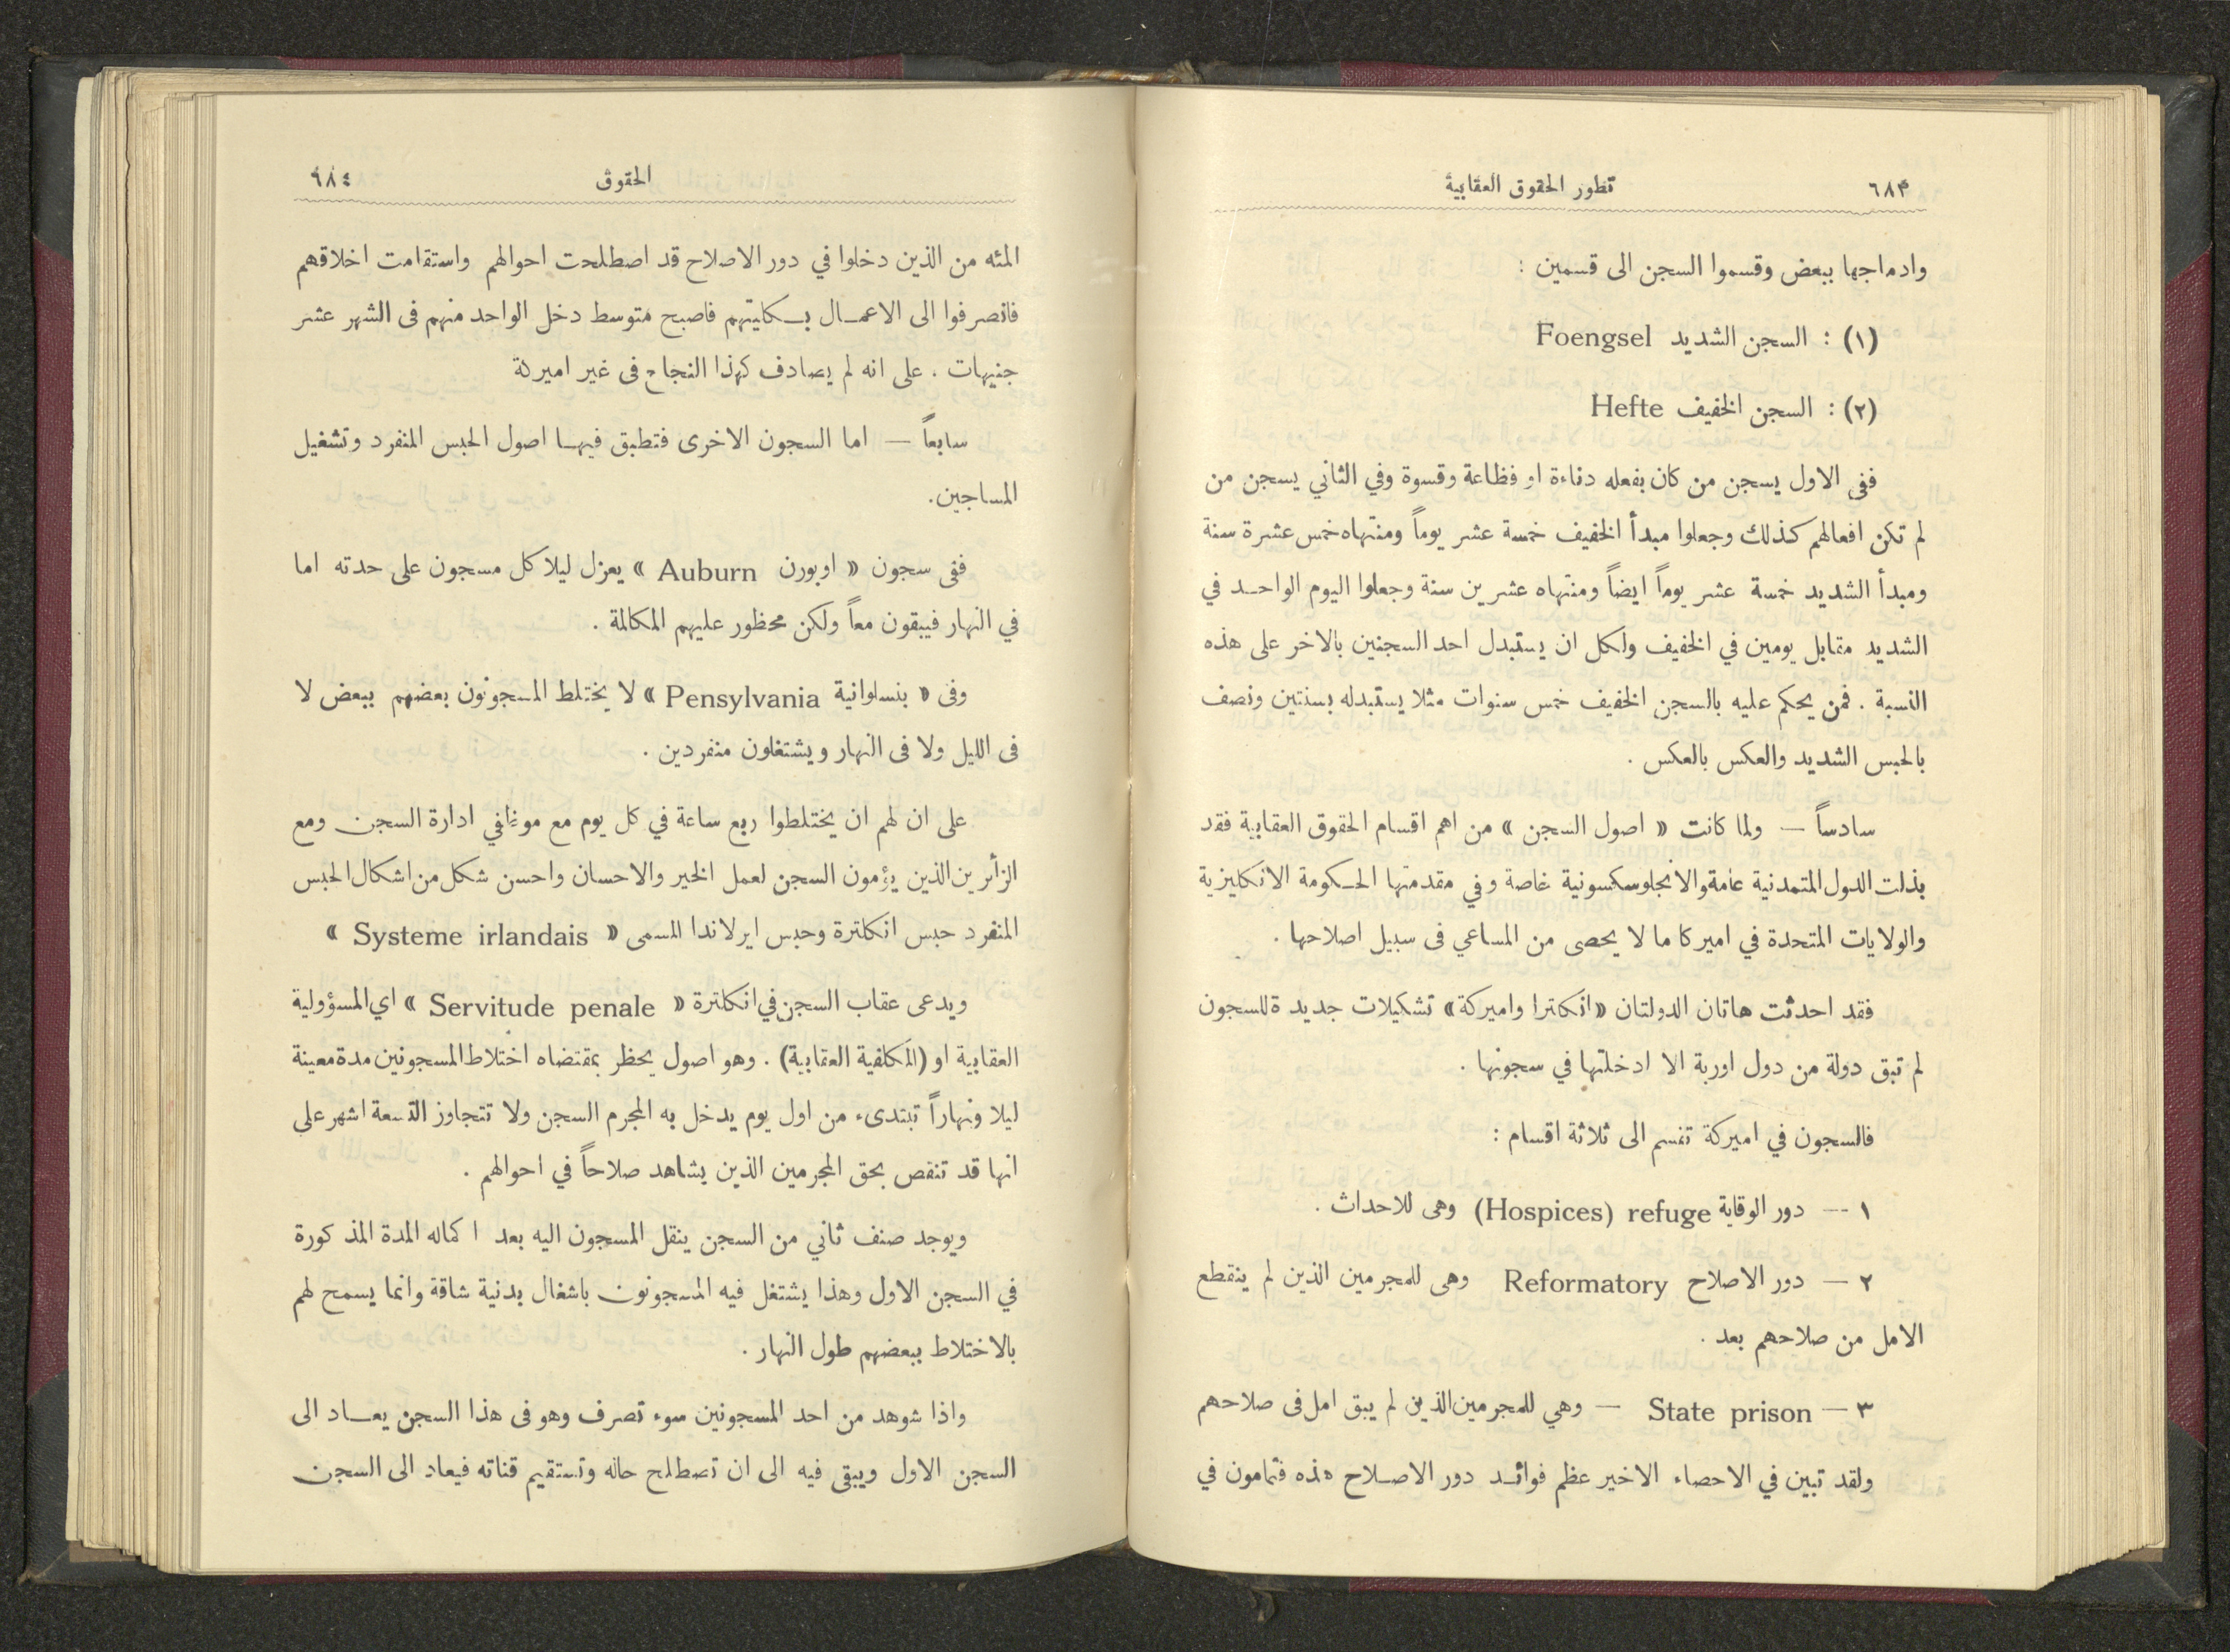 ٦٨٣ تطور الحقوق العقابية
وادماجها ببعض وقسموا السجن الى قسمين :
(١) : السجن الشديد Foengsel
(٢) : السجن الخفيف Hefte
ففى الاول يسجن من كان بفعله دناءة او فظاعة وقسوة وفي الثاني يسجن من
لم تكن افعالهم كذلك وجعلوا مبدأ الخفيف خمسة عشر يوماً ومنتهاه خمس عشرة سنة
ومبدأ الشديد خمسة عشر يوماً ايضاً ومنتهاه عشرين سنة وجعلوا اليوم الواحد في
الشديد مقابل يومين في الخفيف ولكل ان يستبدل احد السجنين بالاخر على هذه
النسبة . فمن يحكم عليه بالسجن الخفيف خمس سنوات مثلا يستبدله بسنتين ونصف
بالحبس الشديد والعكس بالعكس .
سادساً — ولما كانت « اصول السجن » من اهم اقسام الحقوق العقابية فقد
بذلت الدول المتمدنية عامة والانجلوسكسونية خاصة وفي مقدمتها الحكومة الانكليزية
والولايات المتحدة في اميركا ما لا يحصى من المساعي فى سبيل اصلاحها .
فقد احدثت هاتان الدولتان « انكلترا واميركة » تشكيلات جديدة للسجون
لم تبق دولة من دول اوربة الا ادخلتها في سجونها .
فالسجون في اميركة تقسم الى ثلاثة اقسام :
١ — دور الوقاية Hospices) refuge) وهى للاحداث .
٢ — دور الاصلاح Reformatory وهى للمجرمين الذين لم ينقطع
الامل من صلاحهم بعد .
٣ — State prison — وهي للمجرمين الذين لم يبق امل فى صلاحهم
ولقد تبين في الاحصاء الاخير عظم فوائد دور الاصلاح هذه فثمانون في
الحقوق ٩٨٤
المئه من الذين دخلوا في دور الاصلاح قد اصطلحت احوالهم واستقامت اخلاقهم
فانصرفوا الى الاعمال بكليتهم فاصبح متوسط دخل الواحد منهم فى الشهر عشر
جنيهات . على انه لم يصادف كهذا النجاح فى غير اميركة
سابعاً — اما السجون الاخرى فتطبق فيها اصول الحبس المنفرد وتشغيل
المساجين.
ففى سجون « اوبورن Auburn » يعزل ليلا كل مسجون على حدته اما
في النهار فيبقون معاً ولكن محظور عليهم المكالمة .
وفى « بنسلوانية Pensylvania » لا يختلط المسجونون بعضهم ببعض لا
فى الليل ولا فى النهار ويشتغلون منفردين .
على ان لهم ان يختلطوا ربع ساعة في كل يوم مع موظفي ادارة السجن ومع
الزائرين الذين يؤمون السجن لعمل الخير والاحسان واحسن شكل من اشكال الحبس
المنفرد حبس انكلترة وحبس ايرلاندا المسمى « Systeme irlandais »
ويدعى عقاب السجن في انكلترة « Servitude penale » اي المسؤولية
العقابية او (المكلفية العقابية) . وهو اصول يحظر بمقتضاه اختلاط المسجونين مدة معينة
ليلا ونهاراً تبتدىء من اول يوم يدخل به المجرم السجن ولا تتجاوز التسعة اشهر على
انها قد تنقص بحق المجرمين الذين يشاهد صلاحاً في احوالهم .
ويوجد صنف ثاني من السجن ينقل المسجون اليه بعد اكماله المدة المذكورة
في السجن الاول وهذا يشتغل فيه المسجونون باشغال بدنية شاقة وانما يسمح لهم
بالاختلاط ببعضهم طول النهار .
واذا شوهد من احد المسجونين سوء تصرف وهو فى هذا السجن يعاد الى
السجن الاول ويبقى فيه الى ان تصطلح حاله وتستقيم قناته فيعاد الى السجن